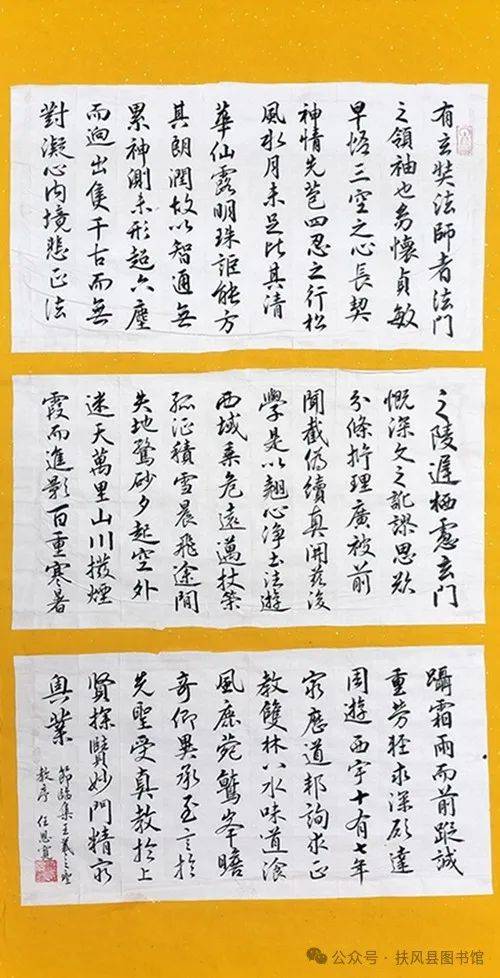 有玄奘法師者法門
之領袖也幼懷貞敏
早悟三空之心長契
神情先苞四忍之行松
風水月未足比其清
華仙露明珠詎能方
其朗潤故以智通無
累神測未形超六塵
而迥出隻千古而無
對凝心內境悲正法
之陵遲栖慮玄門
慨深文之訛謬思欲
分條析理廣彼前
聞截偽續真開茲後
學是以翹心淨土法遊
西域乗危遠邁杖策
孤征積雪晨飛途閒
失地驚砂夕起空外
迷天萬里山川撥煙
霞而進影百重寒暑
躡霜雨而前蹤誠
重勞輕求深願達
周遊西宇十有七年
窮歷道邦詢求正
教雙林八水味道飡
風鹿菀鷲峯瞻
奇仰異承至言於
先聖受真教於上
賢探賾妙門精窮
奧業
節臨集王羲之聖
教序 任思
公众号·扶风县图书馆